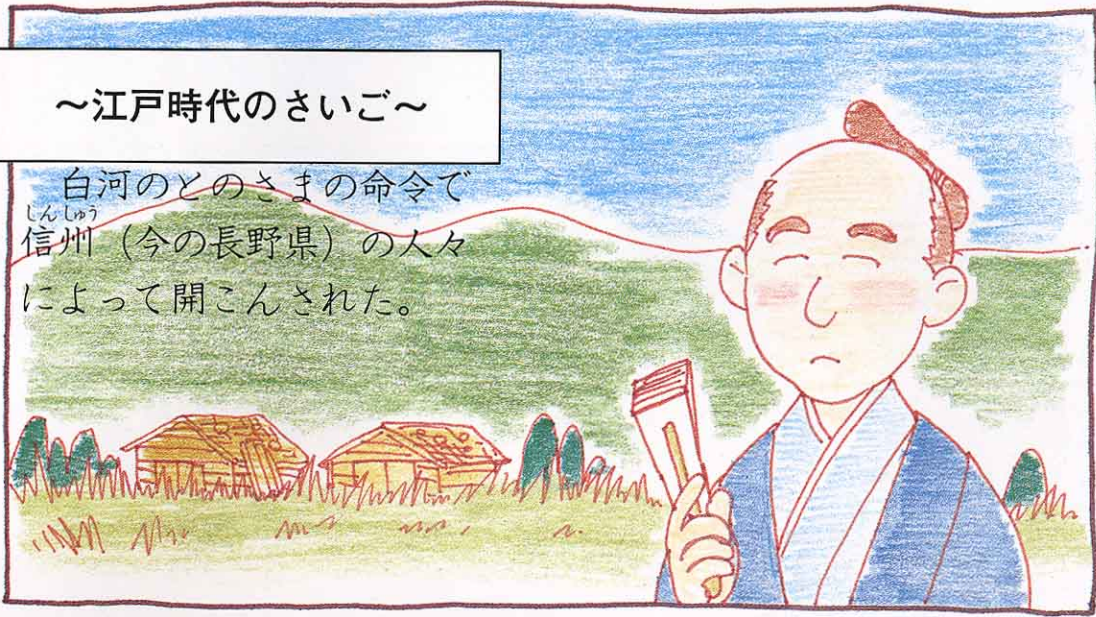 ～江戸時代のさいご～
白河のとのさまの命令で
しんしゅう
信州（今の長野県）の人々
によって開こんされた。